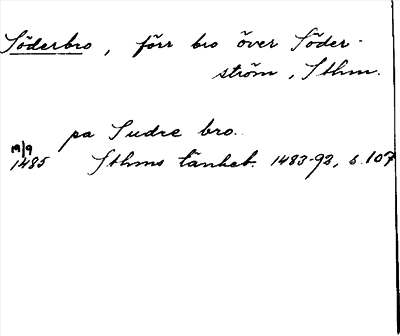 Söderbro, förr bro över Söder-
ström, Sthm.
pa Sudre bro.
19/9
1485 Sthms tänkeb. 1483-92, s. 107